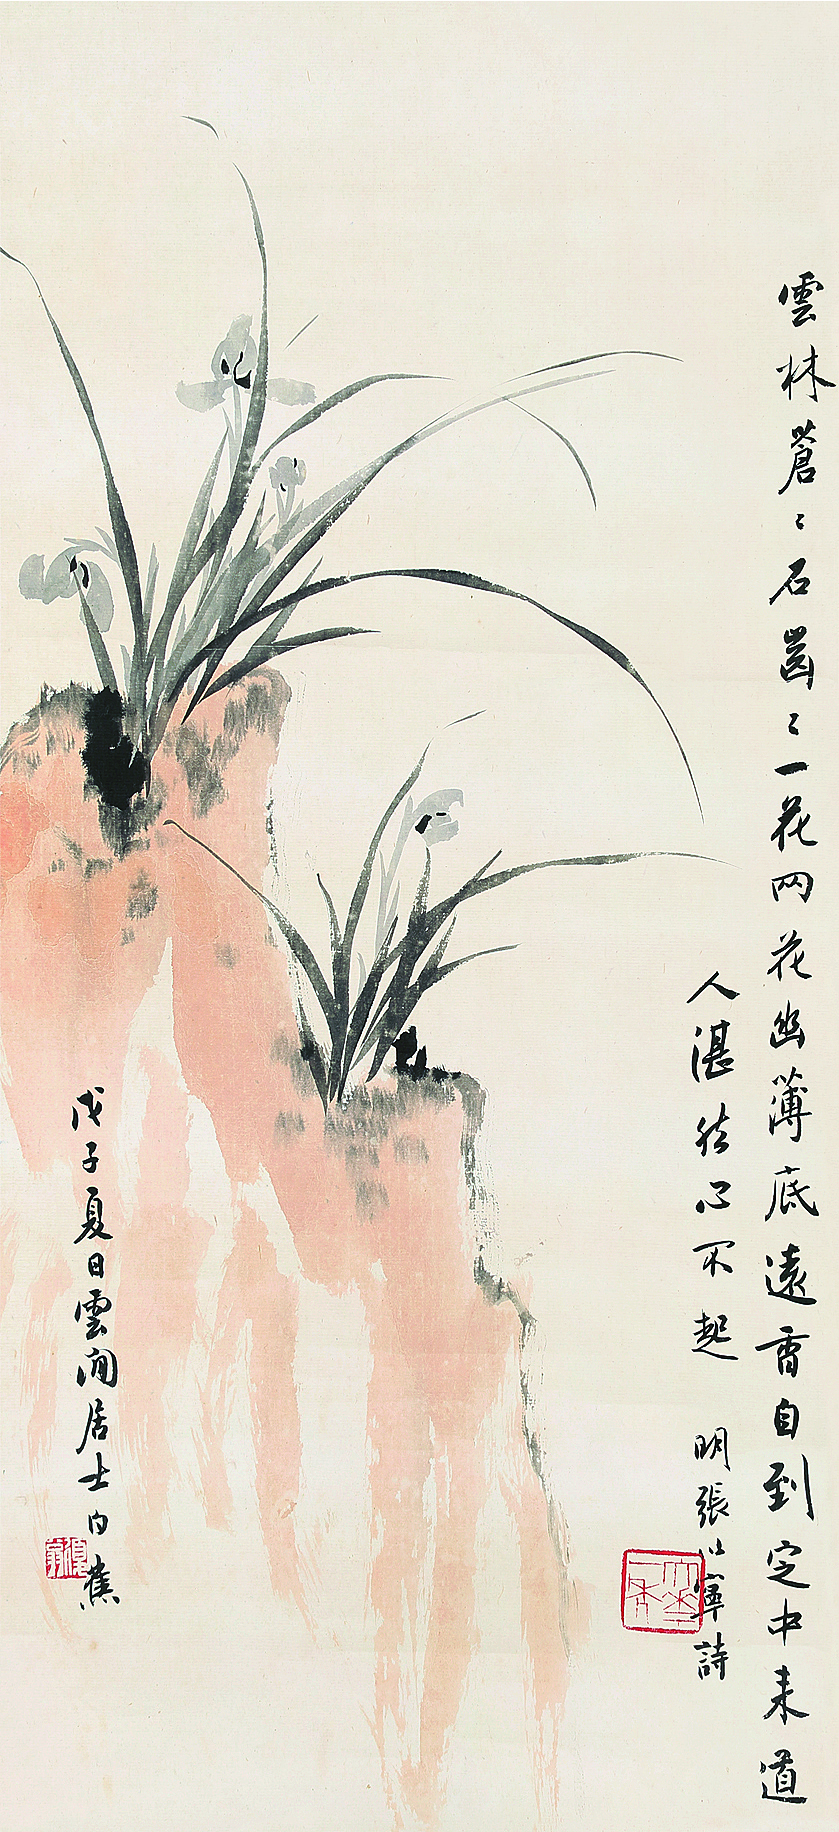 雲林蒼〻石齒〻一花兩花幽薄底遠香自到定中来道
人湛然心不起 明張以寧詩
戊子夏日雲間居士白蕉
復翁